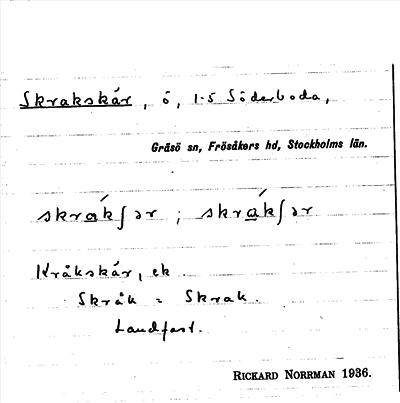 Skrakskär, ö, 1-5 Söderboda,
Gräsö sn, Frösåkers hd, Stockholms län.
skrákʃər ; skrákʃər
Kråkskär, ek.
Skråk = Skrak.
Landfast.
RICKARD NORRMAN 1936.